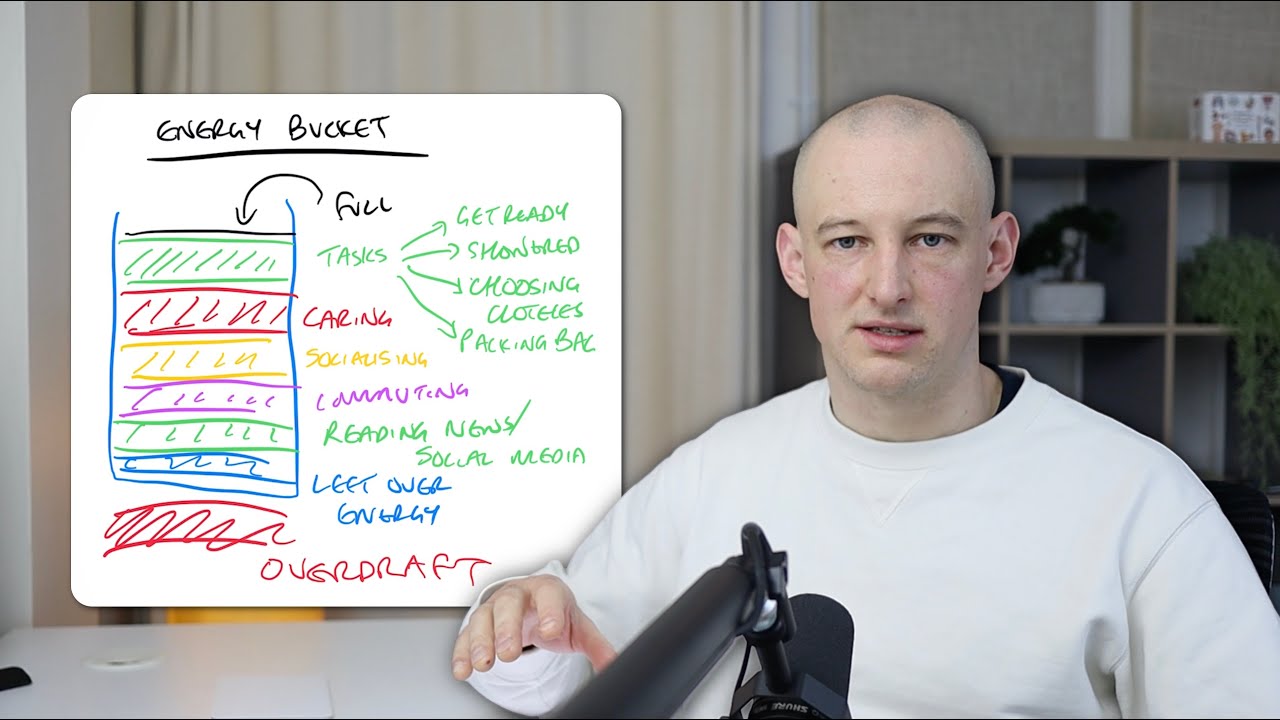 ENERGY BUCKET
FULL
TASKS
GET READY
SHOWERED
CHOOSING
CLOTHES
PACKING BAG
CARING
SOCIALISING
COMMUTING
READING NEWS/
SOCIAL MEDIA
LEFT OVER
ENERGY
OVERDRAFT
SHURE